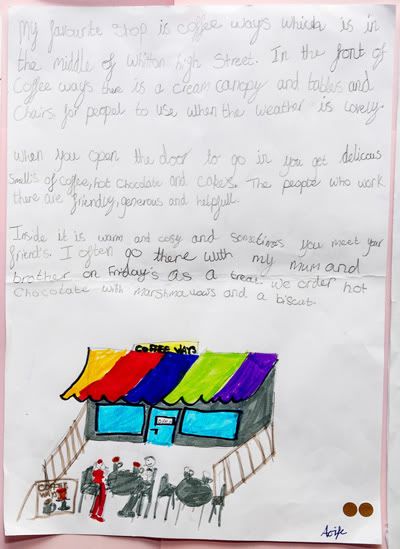 My favourite shop is coffee ways which is in
the middle of Whitton high Street. In the front of
Coffee ways there is a cream canopy and tables and
Chairs for peopel to use when the weather is lovely.
When you open the door to go in you get delicous
smells of coffee, hot chocolate and cakes. The people who work
there are friendly, generous and helpfull.
Inside it is warm and cosy and sometimes you meet your
friends. I often go there with my mum and
brother on Friday's as a treat. We order hot
Chocolate with marshmallows and a biscuit.
COFFEE WAYS
COFFEE
WAYS